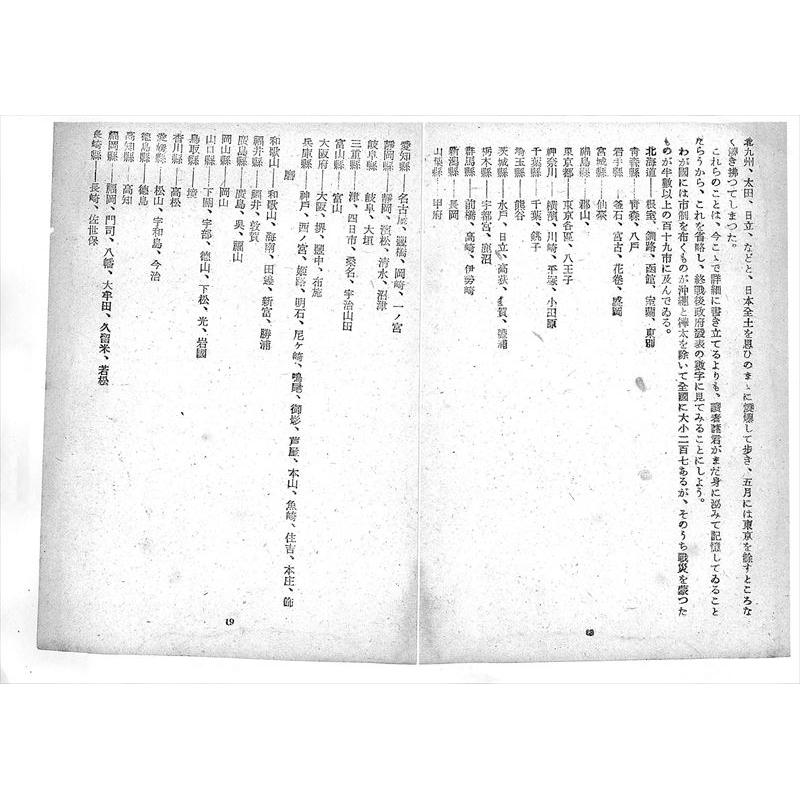 北九州、太田、日立、などと、日本全土を思ひのまゝに爆撃して歩き、五月には東京を餘すところな
く燒き拂つてしまつた。
これらのことは、今こゝで詳細に書き立てるよりも、讀者諸君がまだ身に泌みて記憶してゐること
だらうから、これを省略し、終戰後政府發表の數字に見てみることにしよう。
わが國には市制を布くものが沖繩と樺太を除いて全國に大小二百七あるが、そのうち戰災を蒙つた
ものが半數以上の百十九市に及んでゐる。
北海道――根室、釧路、函館、室蘭、東別
青森縣――青森、八戸
岩手縣――釜石、宮古、花卷、盛岡
宮城縣――仙臺
福島縣――郡山、
東京都――東京各區、八王子
神奈川――橫濱、川崎、平塚、小田原
千葉縣――千葉、銚子
埼玉縣――熊谷
茨城縣――水戸、日立、高萩、多賀、豐浦
栃木縣――宇都宮、鹿沼
群馬縣――前橋、高崎、伊勢崎
新潟縣――長岡
山梨縣――甲府
愛知縣――名古屋、豐橋、岡崎、一ノ宮
靜岡縣――靜岡、濱松、清水、沼津
岐阜縣――岐阜、大垣
三重縣――津、四日市、桑名、宇治山田
富山縣――富山
大阪府――大阪、堺、豐中、布施
兵庫縣――神戸、西ノ宮、姫路、明石、尼ヶ崎、鳴尾、御影、芦屋、本山、魚崎、住吉、本庄、飾
磨
和歌山――和歌山、海南、田邊、新宮、勝浦
福井縣――福井、敦賀
廣島縣――廣島、吳、福山
岡山縣――岡山
山口縣――下關、宇部、德山、下松、光、岩國
鳥取縣――境
香川縣――高松
愛媛縣――松山、宇和島、今治
德島縣――德島
高知縣――高知
福岡縣――福岡、門司、八幡、大牟田、久留米、若松
長崎縣――長崎、佐世保
19